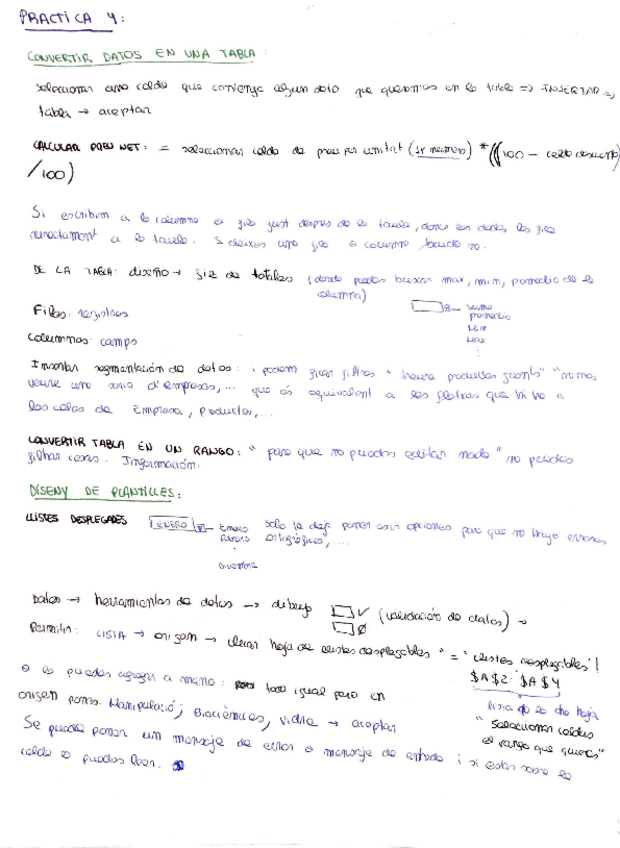 PRACTICA 4:
CONVERTIR DATOS EN UNA TABLA:
seleccionar una celda que contenga algun dato que queramos en la tabla => INSERTAR =>
tabla → aceptar
CALCULAR PREU NET: = seleccionar celda de preu per unitat ( ) * ((100 - celda descuento)
/100)
Si escribim a la columna o fila just despres de la taula, doncs en dades les fica
directament a la taula. Si deixes una fila o columna no.
DE LA TABLA: diseño → fila de totales (donde puedes buscar max, min, promedio de la
columna)
suma
promedio
Filas: registros
Columnas: camps
Insertar segmentación de datos: podem ficar filtros "
veure una d'empresas, ... que és equivalent a les fletxas que hi ha a
les celdas de Empresa, productos, ...
CONVERTIR TABLA EN UN RANGO: " para que no puedas editar nada" no puedes
filtrar . Información.
DISENY DE PLANTILLES:
LLISTES DESPLEGABLES ENERO Enero solo te deja poner esas opciones para que no haya errores
Febrero ortográficos, ...
Diciembre
Datos → herramientas de datos → dibujo (validación de datos) →
Permitir: LISTA → origen → hoja de llistes desplegables " = 'llistes desplegables'!
$A$2: $A$4
o lo puedes agregar a mano: todo igual pero en
origen pones: Manipulació; Bioquímica, vidrio → aceptar
"seleccionar celdas
el rango que quieras"
Se puede poner un mensaje de error o mensaje de entrada i si estas sobre la
celda lo puedes leer.